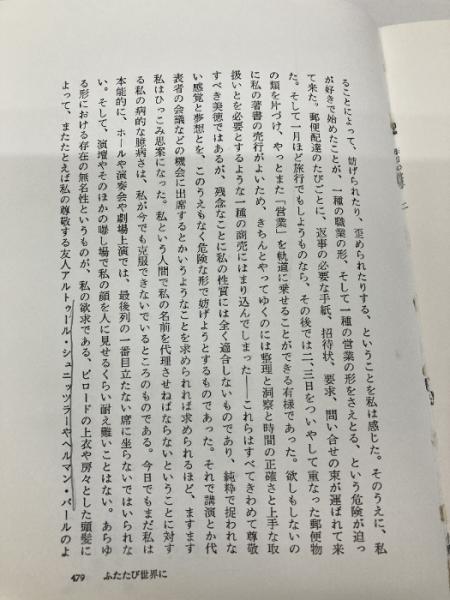 ることによって、妨げられたり、歪められたりする、ということを私は感じた。そのうえに、私
が好きで始めたことが、一種の職業の形、そして一種の営業の形をさえとる、という危険が迫っ
て来た。郵便配達のたびごとに、返事の必要な手紙、招待状、要求、問い合せの束が運ばれて来
た。そして一月ほど旅行でもしようものなら、その後では二、三日をついやして重なった郵便物
の類を片づけ、やっとまた「営業」を軌道に乗せることができる有様であった。欲しもしないの
に私の著書の売行がよいため、きちんとやってゆくのには整理と洞察と時間の正確さと上手な取
扱いとを必要とするような一種の商売にはまり込んでしまった――これらはすべてきわめて尊敬
すべき美徳ではあるが、残念なことに私の性質には全く適合しないものであり、純粋で捉われな
い感覚と夢想とを、このうえもなく危険な形で妨げようとするものであった。それで講演とか代
表者の会議などの機会に出席するとかいうようなことを求められれば求められるほど、ますます
私はひっこみ思案になった。私という人間で私の名前を代理させねばならないということに対す
る私の病的な臆病さは、私が今でも克服できないでいるところのものである。今日でもまだ私は
本能的に、ホールや演奏会や劇場上演では、最後列の一番目立たない席に坐らないではいられな
い。そして、演壇やそのほかの曝し場で私の顔を人に見せるくらい耐え難いことはない。あらゆ
る形における存在の無名性というものが、私の欲求である、ビロードの上衣や房々とした頭髪に
よって、またたとえば私の尊敬する友人アルトゥール・シュニッツラーやヘルマン・バールのよ
479 ふたたび世界に